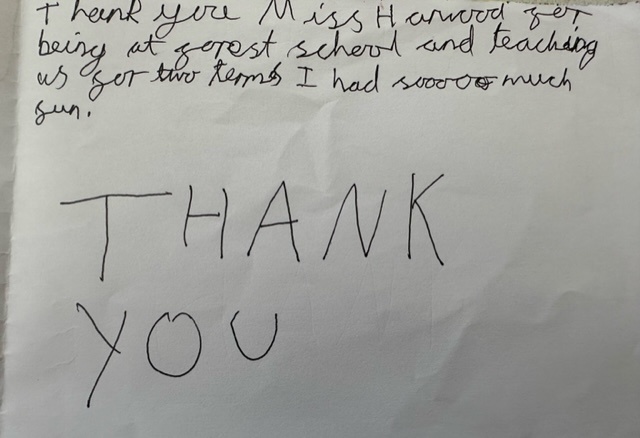 Thank you Miss Harwood for
being at forest school and teaching
us for two terms I had sooooo much
fun.
THANK
YOU